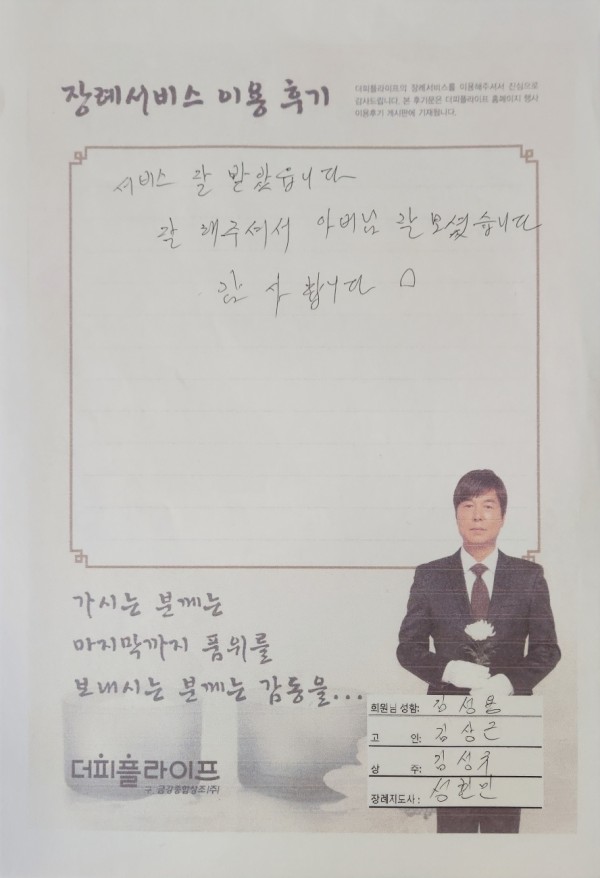 장례서비스 이용 후기
더피플라이프의 장례서비스를 이용해주셔서 진심으로
감사드립니다. 본 후기문은 더피플라이프 홈페이지 행사
이용후기 게시판에 기재됩니다.
서비스 잘 받았습니다
잘 해주셔서 아버님 잘 모셨습니다
감사합니다
가시는 분께는
마지막까지 품위를
보내시는 분께는 감동을...
회원님 성함: 김성용
고 인: 김상근
상 주: 김성우
장례지도사: 성현민
더피플라이프
구. 금강종합상조(주)